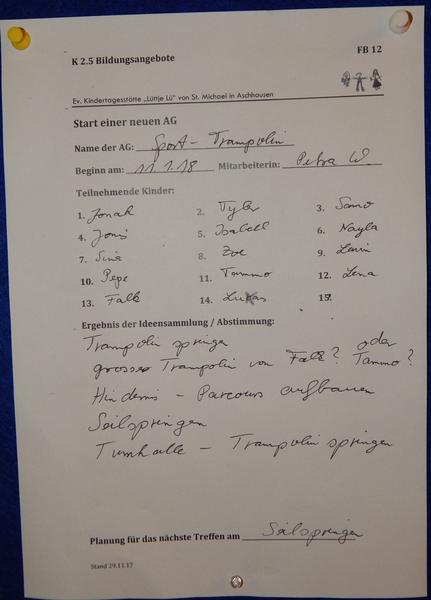 K 2.5 Bildungsangebote FB 12
Ev. Kindertagesstätte „Lüttje Lü“ von St. Michael in Aschhausen
Start einer neuen AG
Name der AG: Sport - Trampolin
Beginn am: 11.1.18 Mitarbeiterin: Petra W.
Teilnehmende Kinder:
1. Jonah 2. Tyler 3. Samo
4. Joris 5. Isabell 6. Nayla
7. Sina 8. Zoe 9. Levin
10. Pepe 11. Tammo 12. Lena
13. Falk 14. Lukas 15.
Ergebnis der Ideensammlung / Abstimmung:
Trampolin springen
grosses Trampolin von Falk? oder Tammo?
Hindernis - Parcours aufbauen
Seilspringen
Turnhalle - Trampolin springen
Planung für das nächste Treffen am Seilspringen
Stand 29.11.17